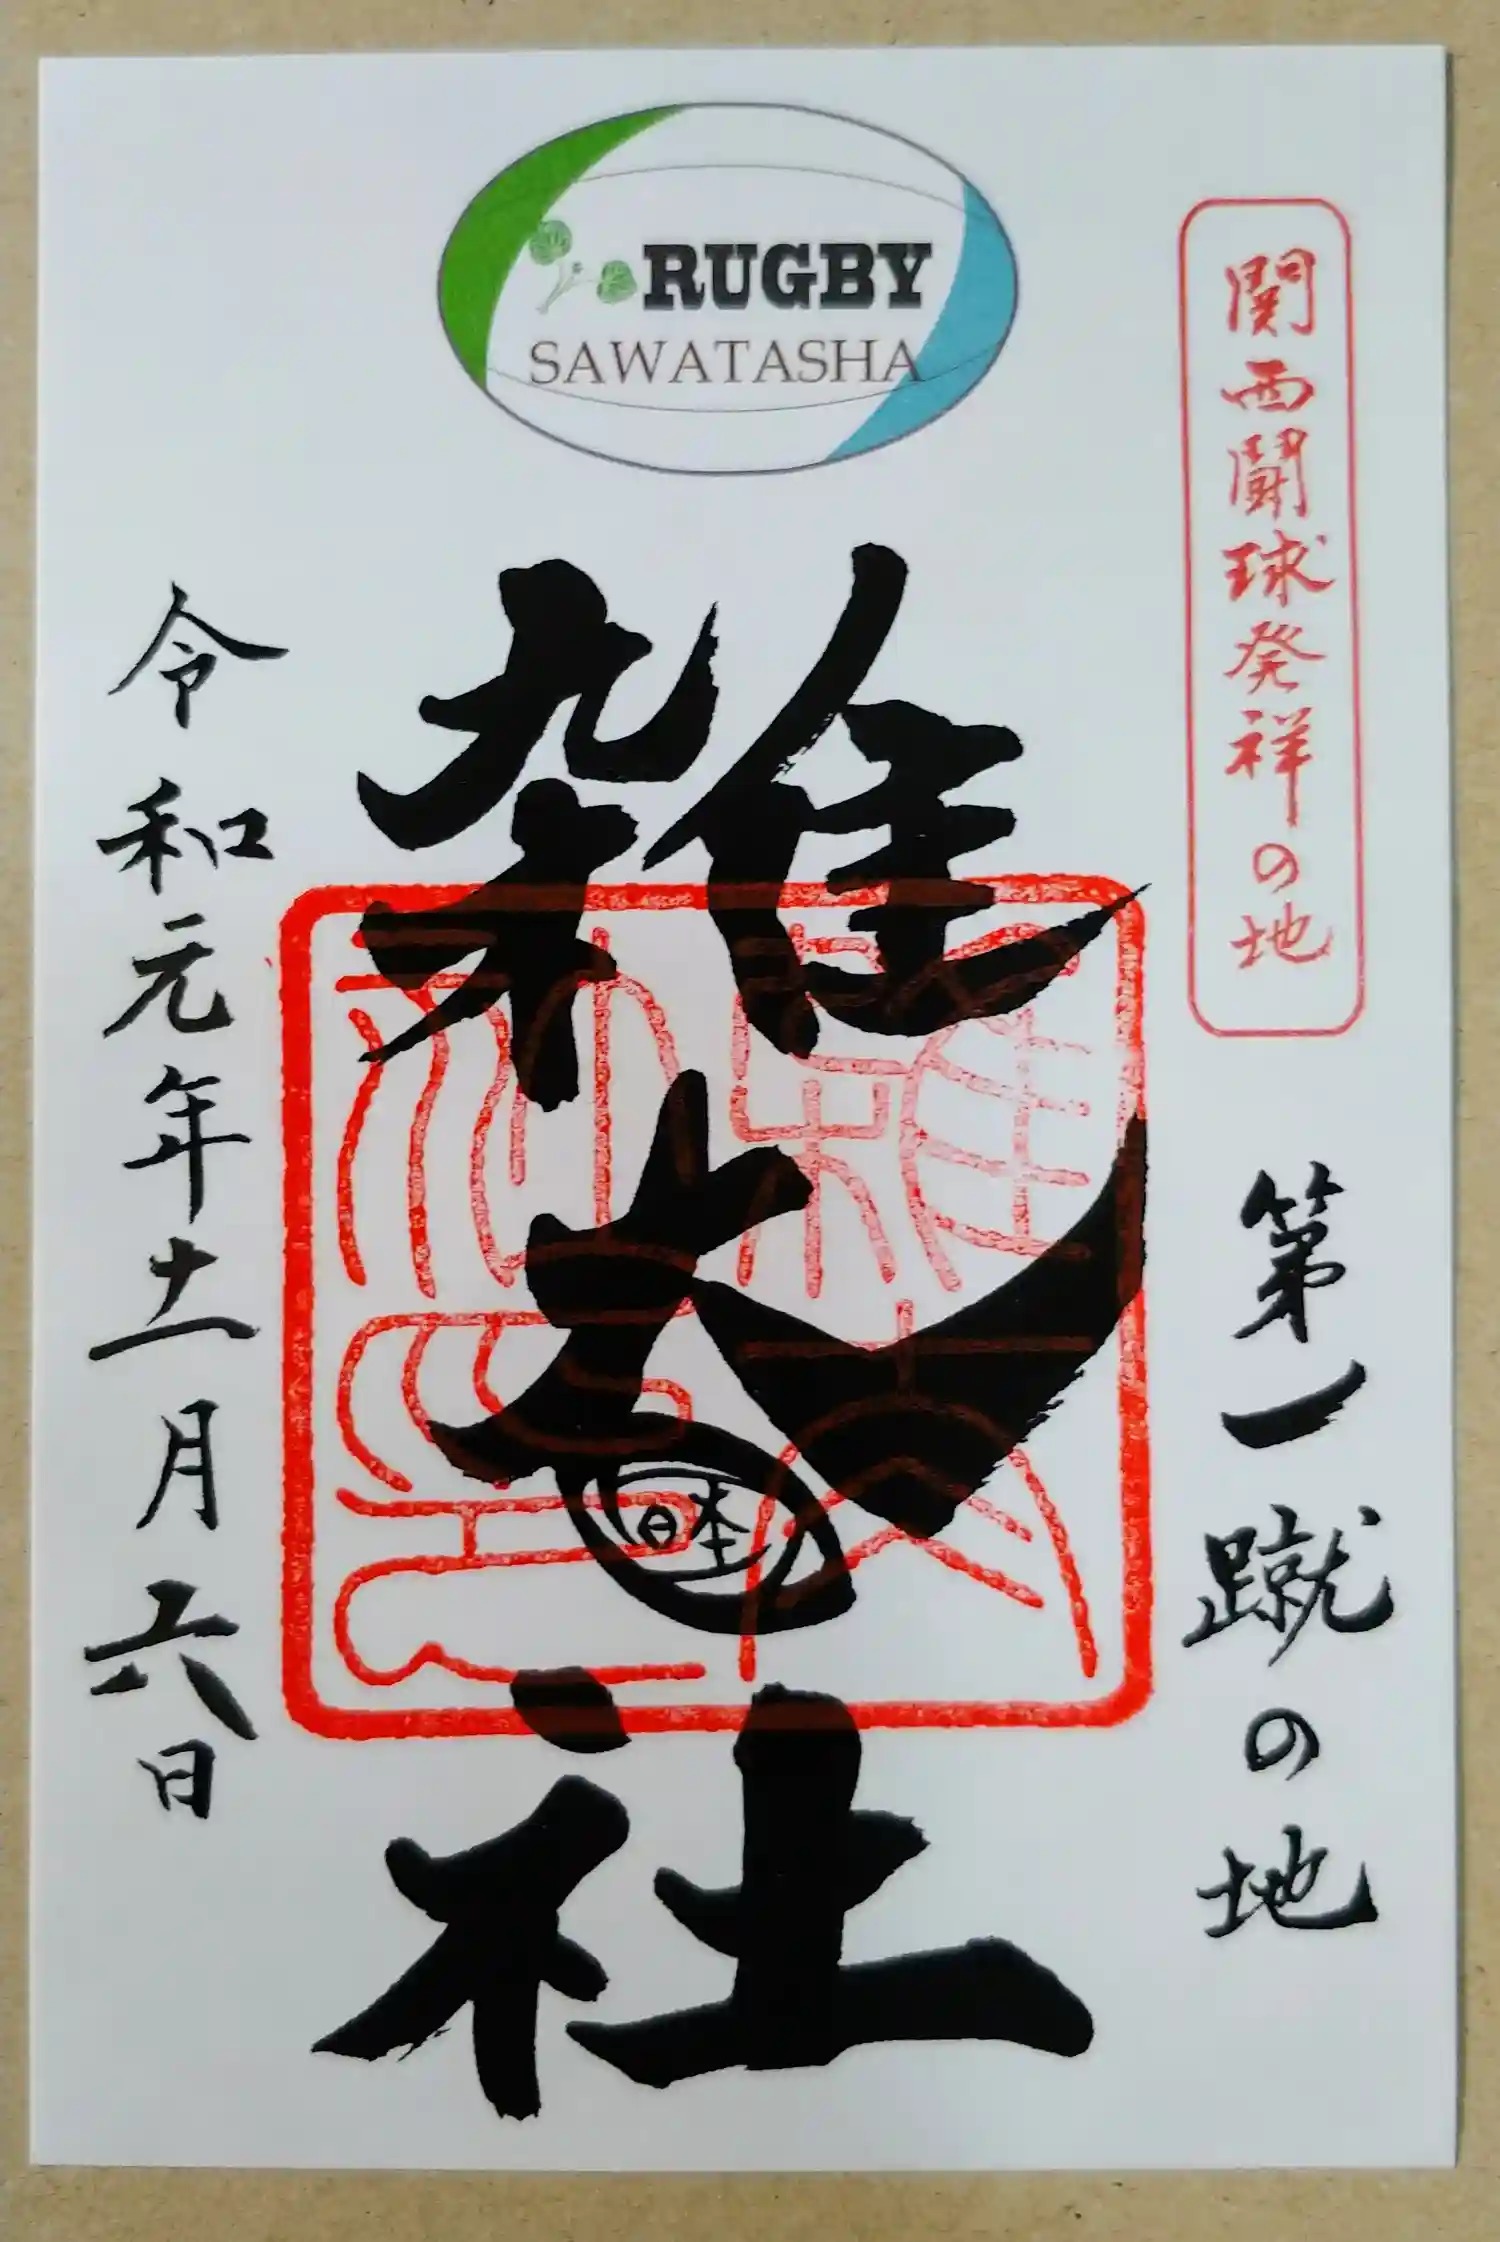 RUGBY
SAWATASHA
関西闘球発祥の地
第一蹴の地
雑太社
令和元年十一月六日